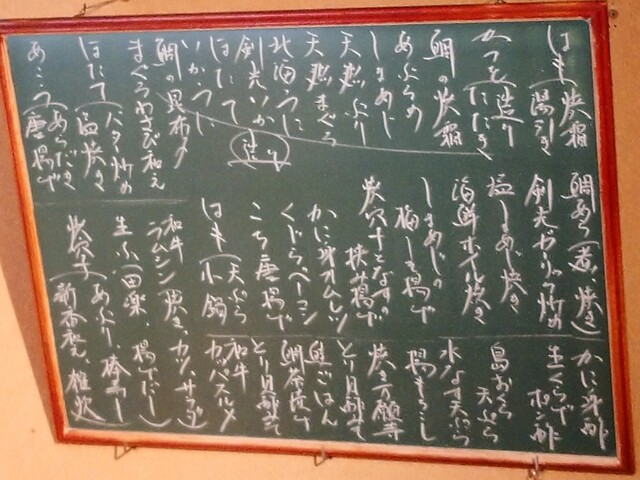 はも（焼霜
湯引き
かつを（造り
たたき
鯛の焼霜
あぶらめ
しまあじ
天然ぶり
天然まぐろ
北海うに
剣先いか
ほたて
いかうに
造り
鯛の昆布〆
まぐろわさび和え
ほたて（バター炒め
塩焼き
あこう（あらだき
唐揚げ
鯛あら（煮、焼き）
剣先ガーリック炒め
塩しまあじ焼き
海鮮ホイル焼き
しまあじの
梅しそ揚げ
焼穴子となすの
挟み揚げ
かに身オムレツ
くじらベーコン
こち唐揚げ
はも（天ぷら
小鍋
和牛
ラムシン（焼き、カツ、サラダ）
生ふ（田楽、揚げだし）
焼穴子（あぶり、棒寿し
新香和え、雑炊
かに身酢
生くらげ
ポン酢
島おくら
天ぷら
水なす天ぷら
揚もろこし
焼き万願寺
とり目酢せ
鮭ごはん
鯛茶漬け
和牛